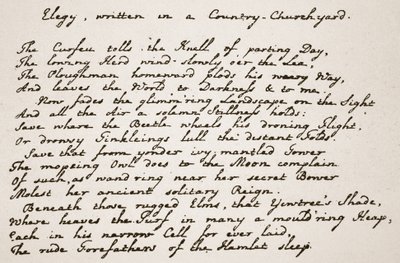 Elegy, written in a Country-Churchyard.
The Curfeu tolls the Knell of parting Day,
The lowing Herd wind slowly o'er the Lea,
The Ploughman homeward plods his weary Way,
And leaves the World to Darkness & to me.
Now fades the glimm'ring Landscape on the Sight
And all the Air a solemn Stillness holds;
Save where the Beetle wheels his droning Flight,
Or drowsy Tinkleings lull the distant Folds.
Save that from yonder ivy-mantled Tower
The mopeing Owl does to the Moon complain
Of such, as wand'ring near her secret Bower
Molest her ancient solitary Reign.
Beneath those rugged Elms, that Yewtree's Shade,
Where heaves the Turf in many a mould'ring Heap,
Each in his narrow Cell for ever laid,
The rude Forefathers of the Hamlet sleep.